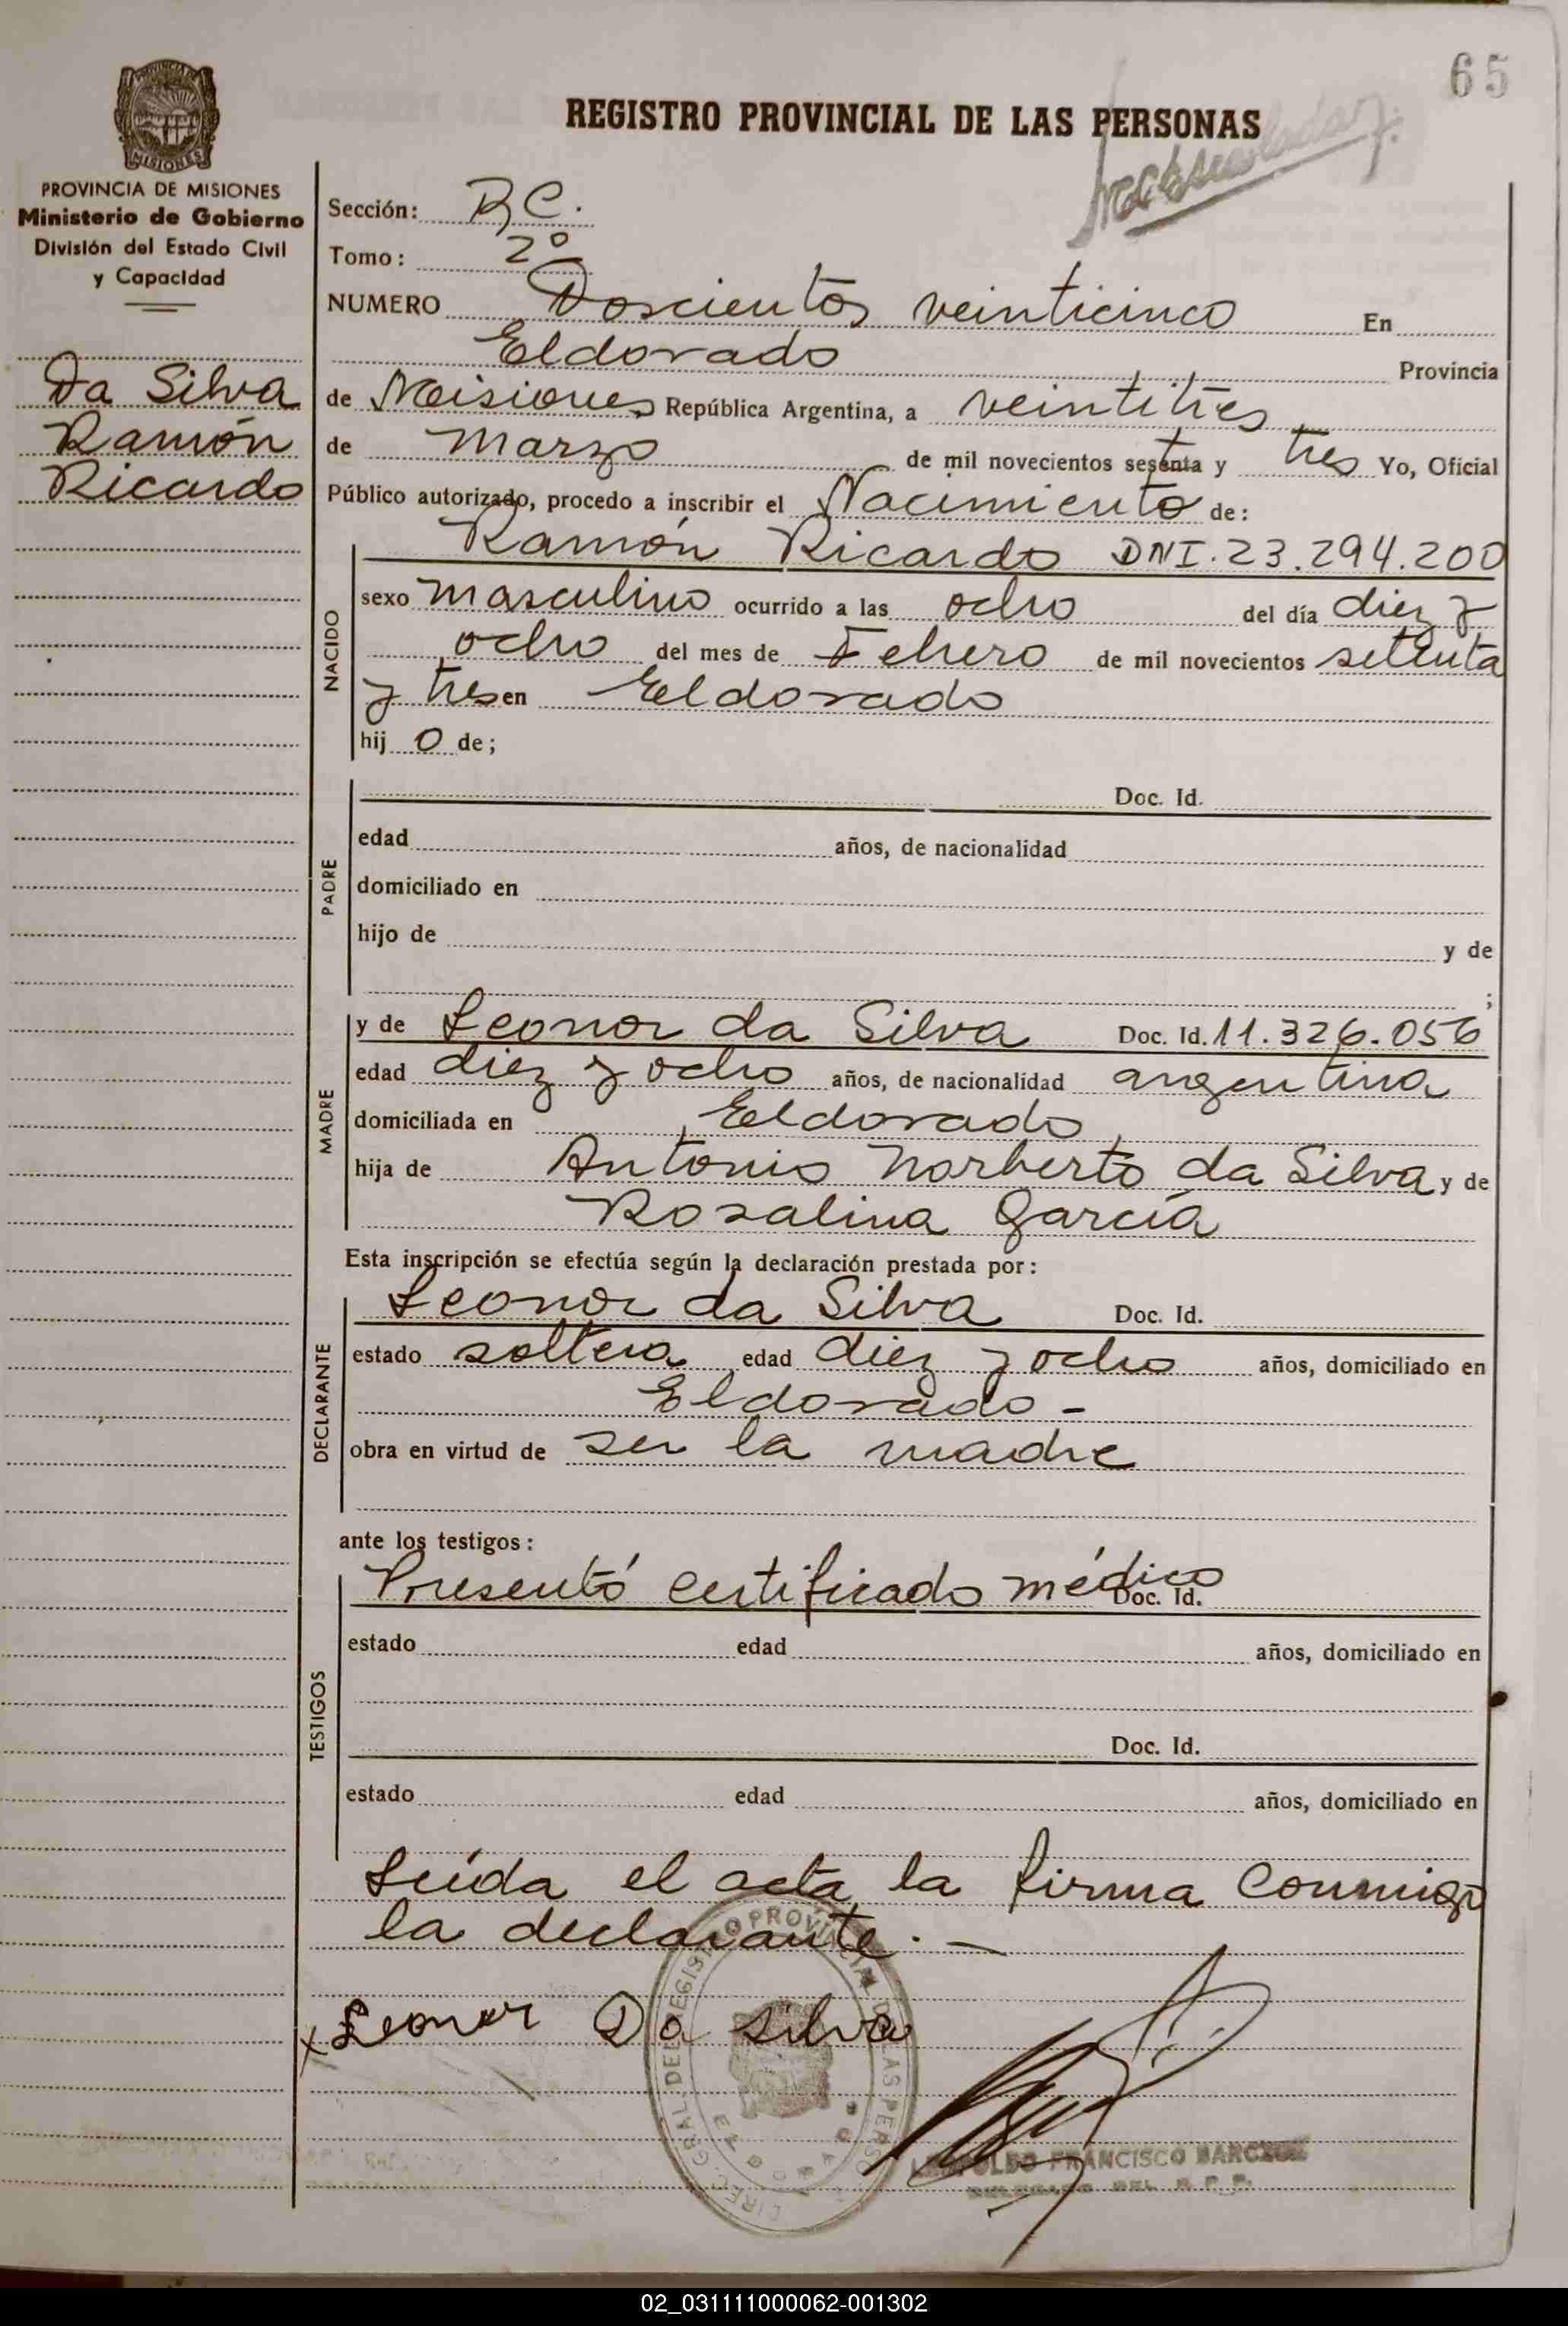 65
REGISTRO PROVINCIAL DE LAS PERSONAS
PROVINCIA DE MISIONES
Ministerio de Gobierno
División del Estado Civil
y Capacidad
Da Silva
Ramón
Ricardo
Sección: R C.
Tomo: 2º
NUMERO Doscientos veinticinco En
Eldorado Provincia
de Misiones República Argentina, a veintitres
de Marzo de mil novecientos setenta y tres Yo, Oficial
Público autorizado, procedo a inscribir el Nacimiento de:
NACIDO
Ramón Ricardo DNI. 23.294.200
sexo masculino ocurrido a las ocho del día diez y
ocho del mes de Febrero de mil novecientos setenta
y tres en Eldorado
hij o de;
PADRE
Doc. Id.
edad años, de nacionalidad
domiciliado en
hijo de y de
;
MADRE
y de Leonor da Silva Doc. Id. 11.326.056
edad diez y ocho años, de nacionalidad argentina
domiciliada en Eldorado
hija de Antonio Norberto da Silva y de
Rosalina García
Esta inscripción se efectúa según la declaración prestada por:
DECLARANTE
Leonor da Silva Doc. Id.
estado soltera edad diez y ocho años, domiciliado en
Eldorado -
obra en virtud de ser la madre
ante los testigos:
TESTIGOS
Presentó certificado médico Doc. Id.
estado edad años, domiciliado en
Doc. Id.
estado edad años, domiciliado en
Leída el acta la firma conmigo
la declarante. —
x Leonor Da silva
DIREC. GRAL. DEL REGISTRO PROVINCIAL DE LAS PERSO
FRANCISCO
DELEGADO DEL R. P. P.
02_031111000062-001302